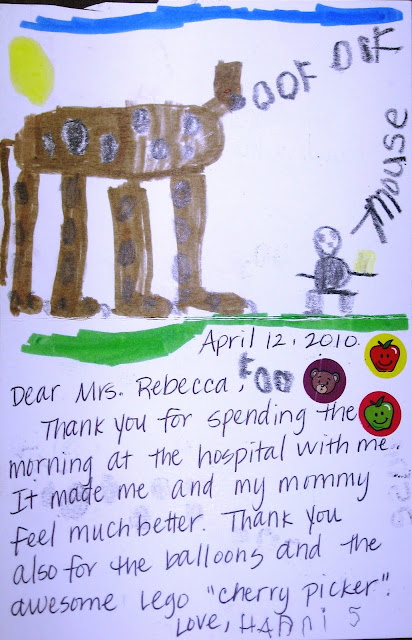 OOF OOF
mouse
April 12, 2010.
Dear Mrs. Rebecca,
Thank you for spending the
morning at the hospital with me.
It made me and my mommy
feel much better. Thank you
also for the balloons and the
awesome Lego "cherry picker".
Love, HANNI 5